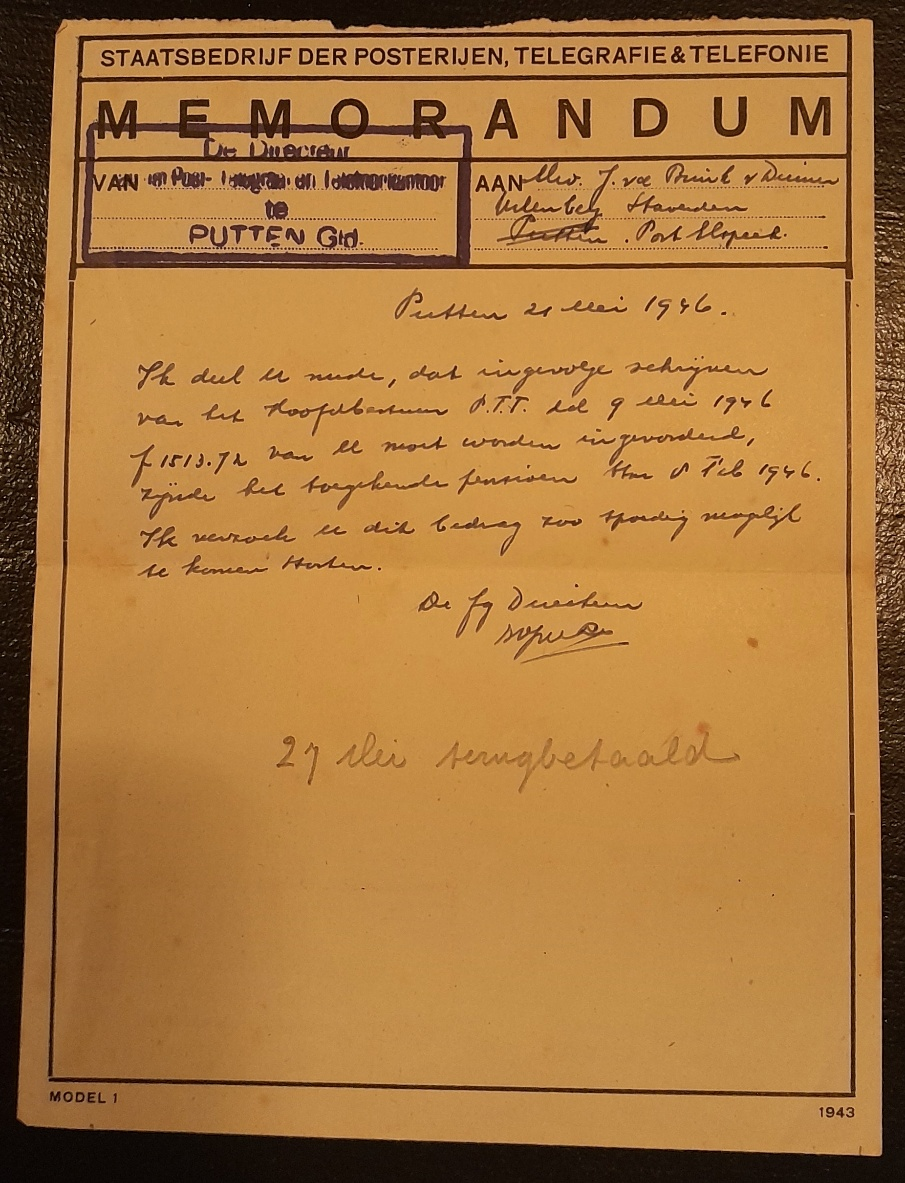 STAATSBEDRIJF DER POSTERIJEN, TELEGRAFIE & TELEFONIE
MEMORANDUM
De Directeur
VAN
te
PUTTEN Gld.
AAN Mev. J. vd Brink v Diemen
Staverden
Putten. Post Elspeet.
Putten 21 Mei 1946.
Ik deel U mede, dat ingevolge schrijven
van het Hoofdbestuur P.T.T. dd 9 Mei 1946
f 1513.72 van U moet worden ingevorderd,
zijnde het toegekende pensioen 8 Feb 1946.
Ik verzoek U dit bedrag zoo spoedig mogelijk
te komen storten.
De fg Directeur
27 Mei terugbetaald
MODEL 1
1943